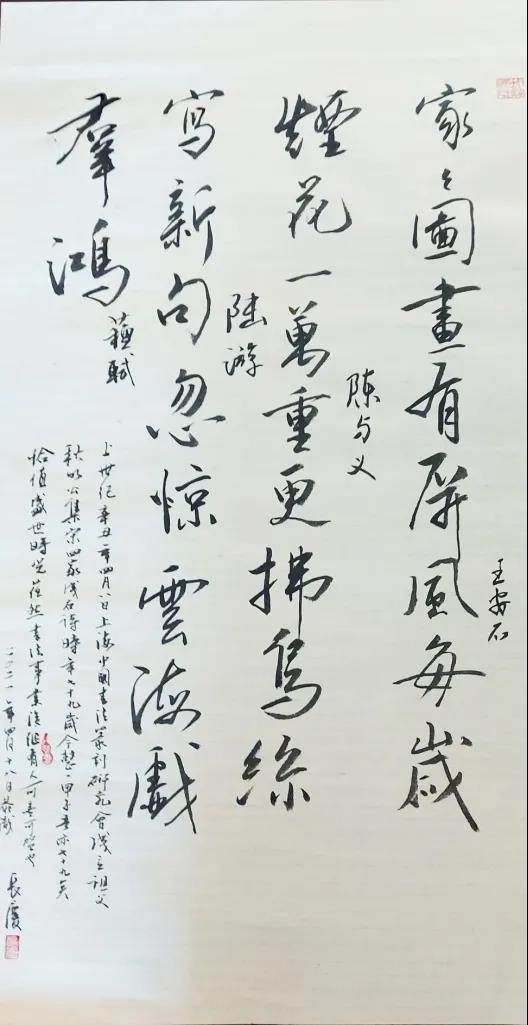 家〻圖畫有屏風每歲
王安石
煙花一萬重更拂烏絲
陳与义
寫新句忽惊雲海戲
陸游
羣鴻
蘇軾
上世纪辛丑年四月八日上海中國書法篆刻研究會成立祖父
秋明公集宋四家诗句 時年七十九歲今整一甲子吾亦七十九矣
恰值盛世時 書法事業後继有人可喜可賀也
二〇二一年四月十八日 長慶